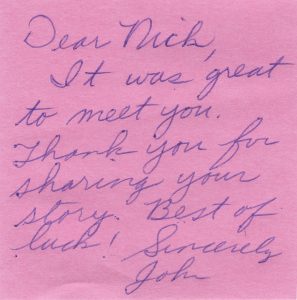 Dear Nick,
It was great
to meet you.
Thank you for
sharing your
story. Best of
luck! Sincerely
John